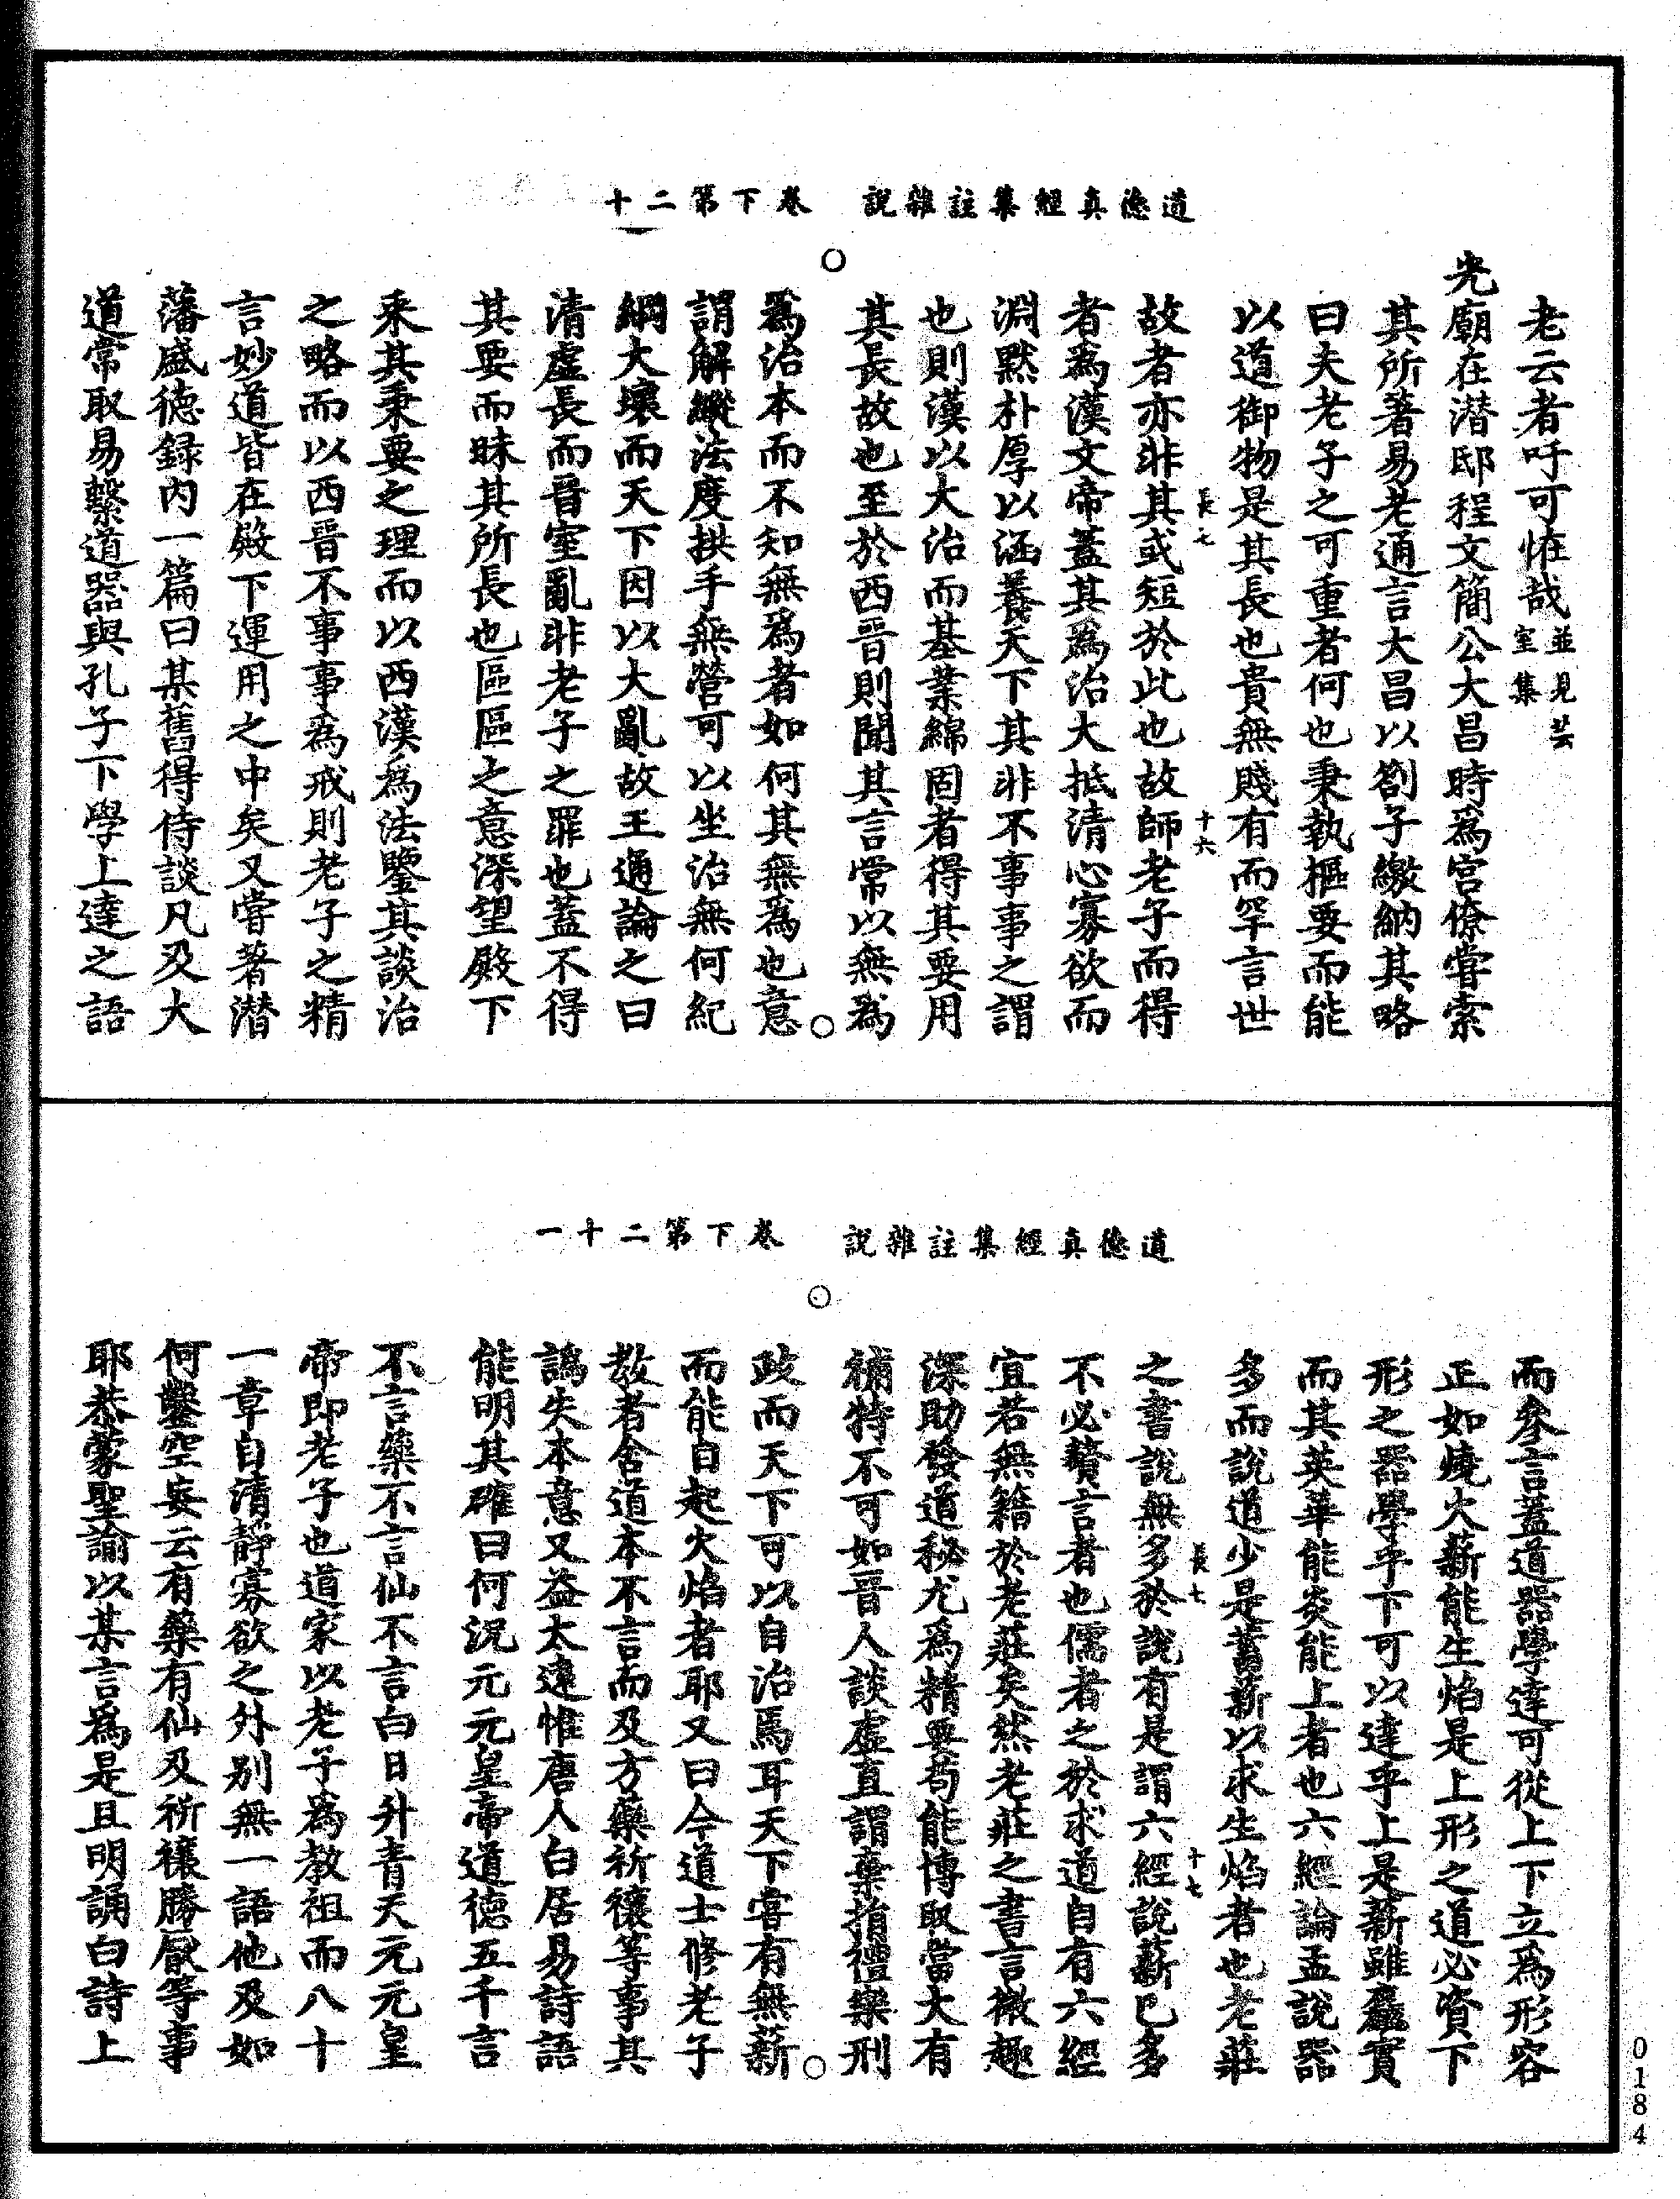 道德真經集註雜說　卷下第二十
老云者吁可恠哉並見芸室集
光廟在潛邸程文簡公大昌時爲宮僚嘗索
其所著易老通言大昌以劄子繳納其略
曰夫老子之可重者何也秉執樞要而能
以道御物是其長也貴無賤有而罕言世
長七
十六
故者亦非其或短於此也故師老子而得
者爲漢文帝蓋其爲治大抵清心寡欲而
淵默朴厚以涵養天下其非不事事之謂
也則漢以大治而基業綿固者得其要用
其長故也至於西晉則聞其言常以無爲
爲治本而不知無爲者如何其無爲也意
謂解縱法度拱手無營可以坐治無何紀
綱大壞而天下因以大亂故王通論之曰
清虛長而晉室亂非老子之罪也蓋不得
其要而昧其所長也區區之意深望殿下
采其秉要之理而以西漢爲法鑒其談治
之略而以西晉不事事爲戒則老子之精
言妙道皆在殿下運用之中矣又嘗著潛
藩盛德錄內一篇曰某舊得侍談凡及大
道常取易繫道器與孔子下學上達之語
道德真經集註雜說　卷下第二十一
而參言蓋道器學達可從上下立爲形容
正如燒火薪能生焰是上形之道必資下
形之器學乎下可以達乎上是薪雖麤實
而其英華能炎能上者也六經論孟說器
多而說道少是蓄薪以求生焰者也老莊
長七
十七
之書說無多於說有是謂六經說薪已多
不必贅言者也儒者之於求道自有六經
宜若無籍於老莊矣然老莊之書言微趣
深助發道秘尤爲精要苟能博取當大有
補特不可如晉人談虛直謂棄捐禮樂刑
政而天下可以自治焉耳天下寧有無薪
而能自起火焰者耶又曰今道士修老子
教者舍道本不言而及方藥祈禳等事其
譌失本意又益太遠惟唐人白居易詩語
能明其確曰何況元元皇帝道德五千言
不言藥不言仙不言白日升青天元元皇
帝即老子也道家以老子爲教祖而八十
一章自清靜寡欲之外別無一語他及如
何鑿空妄云有藥有仙及祈禳勝厭等事
耶恭蒙聖諭以某言爲是且明誦白詩上
0184